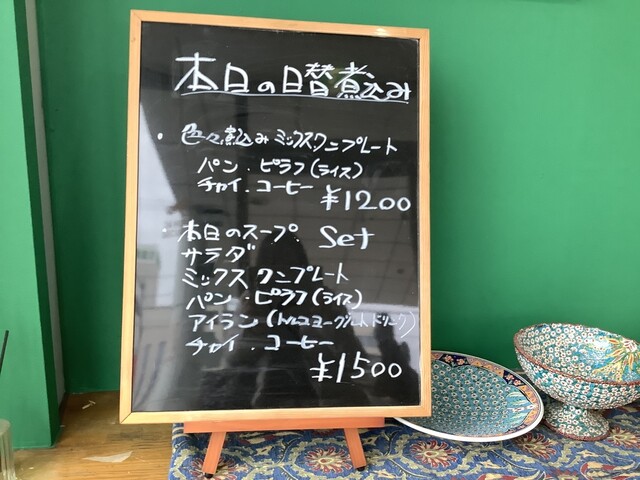 本日の日替煮込み
・色々煮込みミックスワンプレート
パン・ピラフ(ライス)
チャイ.コーヒー
¥1200
・本日のスープ. Set
サラダ
ミックスワンプレート
パン・ピラフ(ライス)
アイラン(トルコヨーグルトドリンク)
チャイ.コーヒー
¥1500